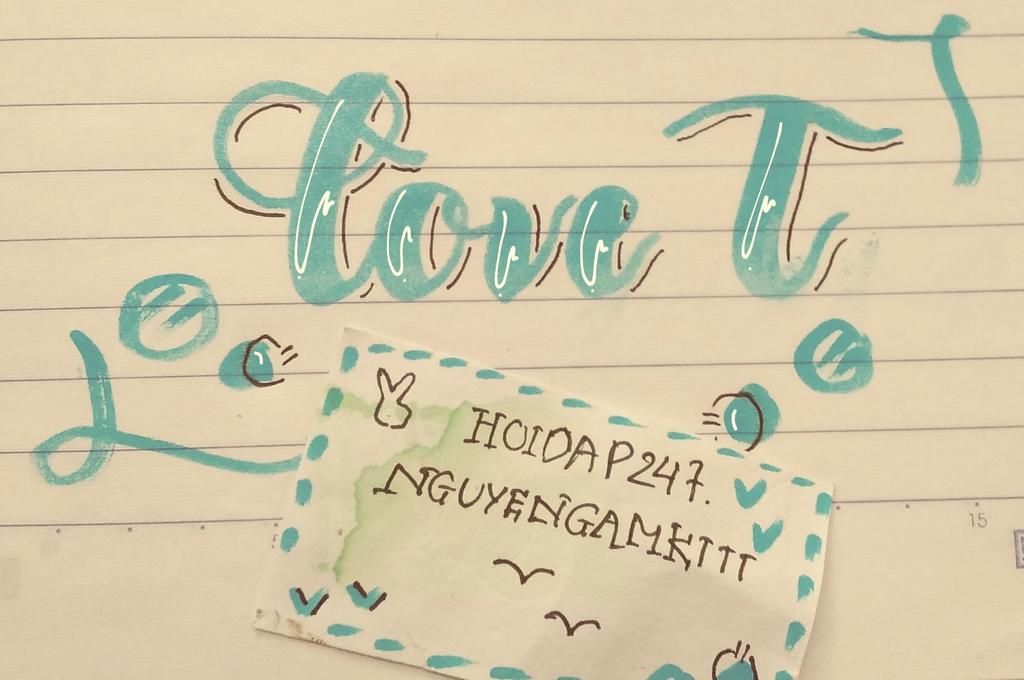 Love T
T
L
HOIDAP247.
NGUYENGAMKTTT
15